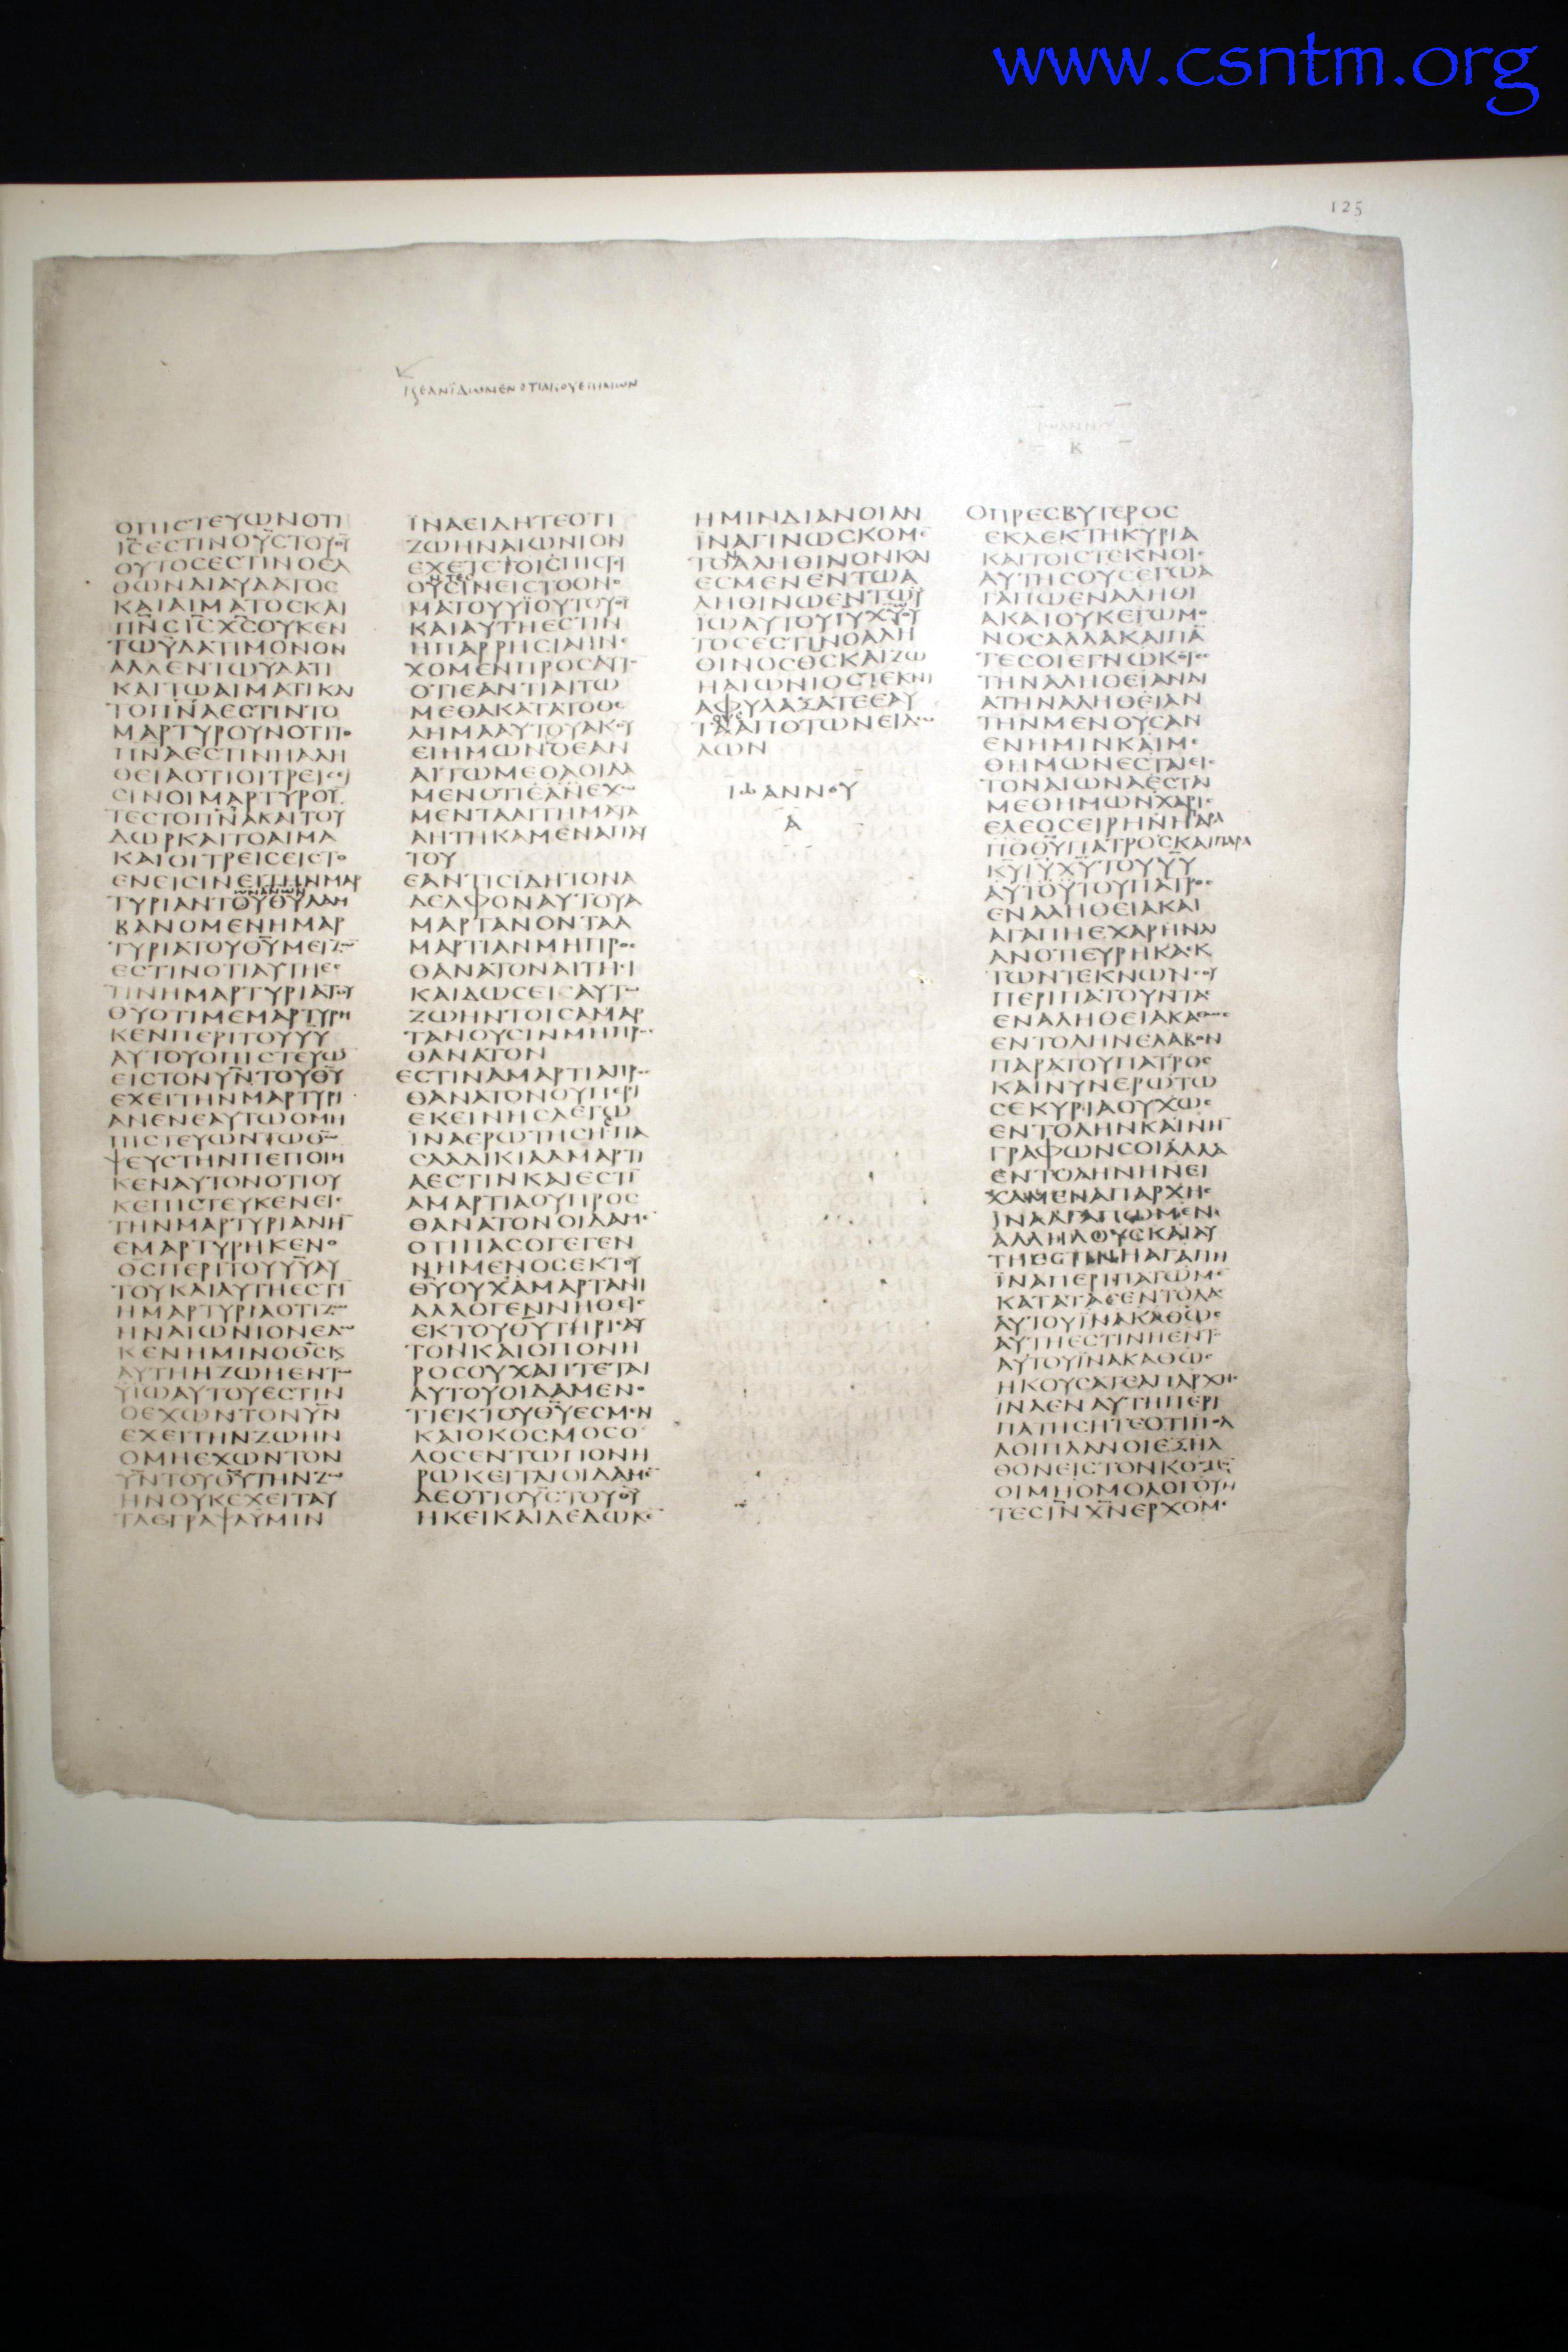 www.csntm.org
125
ΙϚΕΑΝΪΔΩΜΕΝΟΤΙΑΚΟΥΕΙΗΜΩΝ
ΟΠΙCΤΕΥΩΝΟΤΙ
ΙC̅ΕCΤΙΝΟΥC̅ΤΟΥΘΥ̅
ΟΥΤΟCΕCΤΙΝΟΕΛ
ΘΩΝΔΙΑΥΔΑΤΟC
ΚΑΙΑΙΜΑΤΟCΚΑΙ
ΠΝ̅CΙC̅ΧC̅ΟΥΚΕΝ
ΤΩΫΔΑΤΙΜΟΝΟΝ
ΑΛΛΕΝΤΩΥΔΑΤΙ
ΚΑΙΤΩΑΙΜΑΤΙΚΑΙ
ΤΟΠΝ̅ΑΕCΤΙΝΤΟ
ΜΑΡΤΥΡΟΥΝΟΤΙΤΟ
ΠΝΑΕCΤΙΝΗΑΛΗ
ΘΕΙΑΟΤΙΟΙΤΡΕΙCΕΙ
CΙΝΟΙΜΑΡΤΥΡΟΥ
ΤΕCΤΟΠΝ̅ΑΚΑΙΤΟΥ
ΔΩΡΚΑΙΤΟΑΙΜΑ
ΚΑΙΟΙΤΡΕΙCΕΙCΤΟ
ΕΝΕΙCΙΝΕΙΤΗΝΜΑΡ
ΤΥΡΙΑΝΤΟΥΘΥ̅ΛΑΜ
ΒΑΝΟΜΕΝΗΜΑΡ
ΤΥΡΙΑΤΟΥΘΥ̅ΜΕΙΖΩ
ΕCΤΙΝΟΤΙΑΥΤΗΕC
ΤΙΝΗΜΑΡΤΥΡΙΑΤΟΥ
ΘΥΟΤΙΜΕΜΑΡΤΥΡΗ
ΚΕΝΠΕΡΙΤΟΥΥΥ̅
ΑΥΤΟΥΟΠΙCΤΕΥΩ
ΕΙCΤΟΝΥΝ̅ΤΟΥΘΥ̅
ΕΧΕΙΤΗΝΜΑΡΤΥΡΙ
ΑΝΕΝΕΑΥΤΩΟΜΗ
ΠΙCΤΕΥΩΝΤΩΘΩ̅
ΨΕΥCΤΗΝΠΕΠΟΙΗ
ΚΕΝΑΥΤΟΝΟΤΙΟΥ
ΚΕΠΙCΤΕΥΚΕΝΕΙC
ΤΗΝΜΑΡΤΥΡΙΑΝΗ̅
ΕΜΑΡΤΥΡΗΚΕΝΟ
ΘCΠΕΡΙΤΟΥΥΥ̅ΑΥ
ΤΟΥΚΑΙΑΥΤΗΕCΤΙ̅
ΗΜΑΡΤΥΡΙΑΟΤΙΖΩ
ΗΝΑΙΩΝΙΟΝΕΔΩ
ΚΕΝΗΜΙΝΟΘC̅Κ
ΑΥΤΗΗΖΩΗΕΝΤΩ
ΫΙΩΑΥΤΟΥΕCΤΙΝ
ΟΕΧΩΝΤΟΝΥΝ̅
ΕΧΕΙΤΗΝΖΩΗΝ
ΟΜΗΕΧΩΝΤΟΝ
ΥΝ̅ΤΟΥΘΥ̅ΤΗΝΖΩ
ΗΝΟΥΚΕΧΕΙΤΑΥ
ΤΑΕΓΡΑΨΑΥΜΙΝ
ΪΝΑΕΙΔΗΤΕΟΤΙ
ΖΩΗΝΑΙΩΝΙΟΝ
ΕΧΕΤΕΤΟΙCΠΙCΤΕΥ
ΟΥCΙΝΕΙCΤΟΟΝΟ
ΜΑΤΟΥΥΪΟΥΤΟΥΘΥ̅
ΚΑΙΑΥΤΗΕCΤΙΝ
ΗΠΑΡΡΗCΙΑΗΝΕ
ΧΟΜΕΝΠΡΟCΑΥΤΟ̅
ΟΤΙΕΑΝΤΙΑΙΤΩ
ΜΕΘΑΚΑΤΑΤΟΘΕ
ΛΗΜΑΑΥΤΟΥΑΚΟΥ
ΕΙΗΜΩΝΟΕΑΝ
ΑΙΤΩΜΕΘΑΟΙΔΑ
ΜΕΝΟΤΙΕΑΝΕΧΟ
ΜΕΝΤΑΑΙΤΗΜΑΤΑ
ΑΗΤΗΚΑΜΕΝΑΠΑΥ
ΤΟΥ
ΕΑΝΤΙCΙΔΗΤΟΝΑ
ΔΕΛΦΟΝΑΥΤΟΥΑ
ΜΑΡΤΑΝΟΝΤΑΑ
ΜΑΡΤΙΑΝΜΗΠΡΟC
ΘΑΝΑΤΟΝΑΙΤΗCΙ
ΚΑΙΔΩCΕΙCΑΥΤΩ
ΖΩΗΝΤΟΙCΑΜΑΡ
ΤΑΝΟΥCΙΝΜΗΠΡΟC
ΘΑΝΑΤΟΝ
ΕCΤΙΝΑΜΑΡΤΙΑΠΡΟC
ΘΑΝΑΤΟΝΟΥΠΕΡΙ
ΕΚΕΙΝΗCΛΕΓΩ
ΪΝΑΕΡΩΤΗCΗΠΑ
CΑΑΔΙΚΙΑΑΜΑΡΤΙ
ΑΕCΤΙΝΚΑΙΕCΤΙ̅
ΑΜΑΡΤΙΑΟΥΠΡΟC
ΘΑΝΑΤΟΝΟΙΔΑΜΕ
ΟΤΙΠΑCΟΓΕΓΕΝ
ΝΗΜΕΝΟCΕΚΤΟΥ
ΘΥ̅ΟΥΧΑΜΑΡΤΑΝΙ
ΑΛΛΟΓΕΝΝΗΘΕΙC
ΕΚΤΟΥΘΥ̅ΤΗΡΙΑΥ
ΤΟΝΚΑΙΟΠΟΝΗ
ΡΟCΟΥΧΑΠΤΕΤΑΙ
ΑΥΤΟΥΟΙΔΑΜΕΝΟ
ΤΙΕΚΤΟΥΘΥ̅ΕCΜΕΝ
ΚΑΙΟΚΟCΜΟCΟ
ΛΟCΕΝΤΩΠΟΝΗ
ΡΩΚΕΙΤΑΙΟΙΔΑΜΕ̅
ΔΕΟΤΙΟΥC̅ΤΟΥΘΥ̅
ΗΚΕΙΚΑΙΔΕΔΩΚΕ̅
ΗΜΙΝΔΙΑΝΟΙΑΝ
ΪΝΑΓΙΝΩCΚΟΜΕ̅
ΤΟΑΛΗΘΙΝΟΝΚΑΙ
ΕCΜΕΝΕΝΤΩΑ
ΛΗΘΙΝΩΕΝΤΩΥ
ΪΩΑΥΤΟΥΙΥΧΥ̅ΟΥ
ΤΟCΕCΤΙΝΟΑΛΗ
ΘΙΝΟCΘC̅ΚΑΙΖΩ
ΗΑΙΩΝΙΟCΤΕΚΝΙ
ΑΦΥΛΑΞΑΤΕΕΑΥ
ΤΑΑΠΟΤΩΝΕΙΔΩ
ΛΩΝ
ΙΩΑΝΝΟΥ
Α
Κ
ΟΠΡΕCΒΥΤΕΡΟC
ΕΚΛΕΚΤΗΚΥΡΙΑ
ΚΑΙΤΟΙCΤΕΚΝΟΙC
ΑΥΤΗCΟΥCΕΓΩΑ
ΓΑΠΩΕΝΑΛΗΘΙ
ΑΚΑΙΟΥΚΕΓΩΜΟ
ΝΟCΑΛΛΑΚΑΙΠΑ̅
ΤΕCΟΙΕΓΝΩΚΟΤΕC
ΤΗΝΑΛΗΘΕΙΑΝΔΙ
ΑΤΗΝΑΛΗΘΕΙΑΝ
ΤΗΝΜΕΝΟΥCΑΝ
ΕΝΗΜΙΝΚΑΙΜΕ
ΘΗΜΩΝΕCΤΑΙΕΙC
ΤΟΝΑΙΩΝΑΕCΤΑΙ
ΜΕΘΗΜΩΝΧΑΡΙC
ΕΛΕΟCΕΙΡΗΝΗΠΑΡΑ
ΠΟΘΥ̅ΠΑΤΡΟCΚΑΙΠΑΡΑ
ΚΥ̅ΙΥ̅ΧΥ̅ΤΟΥΥΥ̅
ΑΥΤΟΥΤΟΥΠΑΤΡΟC
ΕΝΑΛΗΘΕΙΑΚΑΙ
ΑΓΑΠΗΕΧΑΡΗΝΛΙ
ΑΝΟΤΙΕΥΡΗΚΑΕΚ
ΤΩΝΤΕΚΝΩΝCΟΥ
ΠΕΡΙΠΑΤΟΥΝΤΑC
ΕΝΑΛΗΘΕΙΑΚΑΘΩC
ΕΝΤΟΛΗΝΕΛΑΒΟΝ
ΠΑΡΑΤΟΥΠΑΤΡΟC
ΚΑΙΝΥΝΕΡΩΤΩ
CΕΚΥΡΙΑΟΥΧΩC
ΕΝΤΟΛΗΝΚΑΙΝΗ̅
ΓΡΑΦΩΝCΟΙΑΛΛΑ
ΕΝΤΟΛΗΝΗΝΕΙ
ΧΑΜΕΝΑΠΑΡΧΗC
ΪΝΑΑΓΑΠΩΜΕΝ
ΑΛΛΗΛΟΥCΚΑΙΑΥ
ΤΗΕCΤΙΝΗΑΓΑΠΗ
ΪΝΑΠΕΡΙΠΑΤΩΜΕ
ΚΑΤΑΤΑCΕΝΤΟΛΑC
ΑΥΤΟΥΪΝΑΚΑΘΩC
ΑΥΤΗΕCΤΙΝΗΕΝΤΟ
ΑΥΤΟΥΪΝΑΚΑΘΩC
ΗΚΟΥCΑΤΕΑΠΑΡΧΗC
ΙΝΑΕΝΑΥΤΗΠΕΡΙ
ΠΑΤΗCΗΤΕΟΤΙΠΟΛ
ΛΟΙΠΛΑΝΟΙΕΞΗΛ
ΘΟΝΕΙCΤΟΝΚΟCΜΟ̅
ΟΙΜΗΟΜΟΛΟΓΟΥ̅
ΤΕCΙΝ̅ΧΝ̅ΕΡΧΟΜΕ